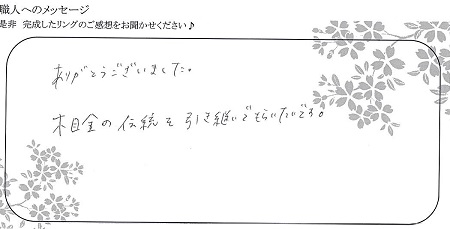 職人へのメッセージ
是非 完成したリングのご感想をお聞かせください♪
ありがとうございました。
木目金の伝統を引き継いでもらいたいです。